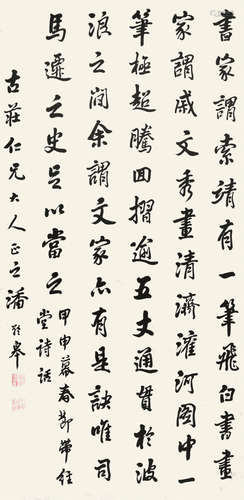 書家謂索靖有一筆飛白書畫
家謂戚文秀畫清濟灌河圖中一
筆極超騰回摺逾五丈通貫於波
浪之間余謂文家亦有是訣唯司
馬遷之史足以當之
甲申暮春節帶経
堂詩話
古莊仁兄大人正之潘齡皋